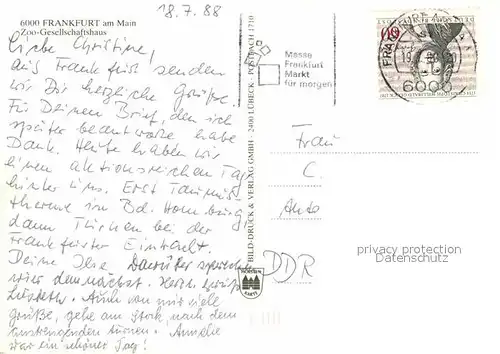 18.7.88
6000 FRANKFURT am Main
Zoo-Gesellschaftshaus
Liebe Christine,
aus Frankfurt senden
wir Dir herzliche Grüße.
Für Deinen Brief, den ich
später beantworte habe
Dank. Heute haben wir
einen aktionsreichen Tag
hinter uns. Erst Taunus
therme in Bd. Homburg
dann Turnen bei der
Frankfurter Eintracht.
Deine Ilse. Darüber sprechen
wir demnächst. Herzl. Grüße
Auch von mir viele
Grüße, gehe am Stock, nach dem
anstrengenden turnen. Annelie
war ein schöner Tag!
BILD-DRUCK & VERLAG GMBH · 2400 LÜBECK · POSTFACH 1710
Messe
Frankfurt
Markt
für morgen
FRANKFURT
6000
Frau
C.
DDR
privacy protection
Datenschutz